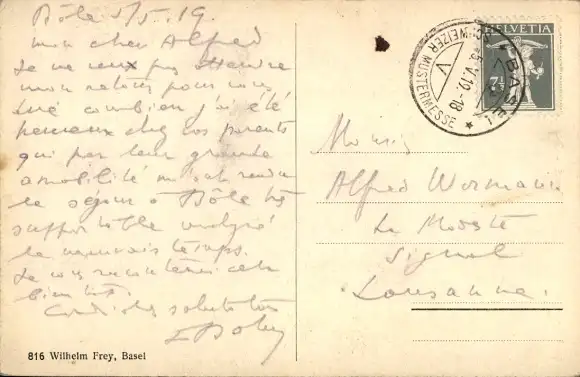 Bâle 5/5. 19.
mon cher Alfred
Je ne veux pas attendre
mon retour pour vous
dire combien j'ai été
heureux chez vos parents
qui par leur grande
amabilité m'ont rendu
le séjour à Bâle très
supportable malgré
le mauvais temps.
Je vous raconterai cela
bientôt.
Cordiales salutations
816 Wilhelm Frey, Basel
HELVETIA
7½
BASEL
5.V.19.-18
V
SCHWEIZER MUSTERMESSE
Alfred
La
Signal
Lausanne.